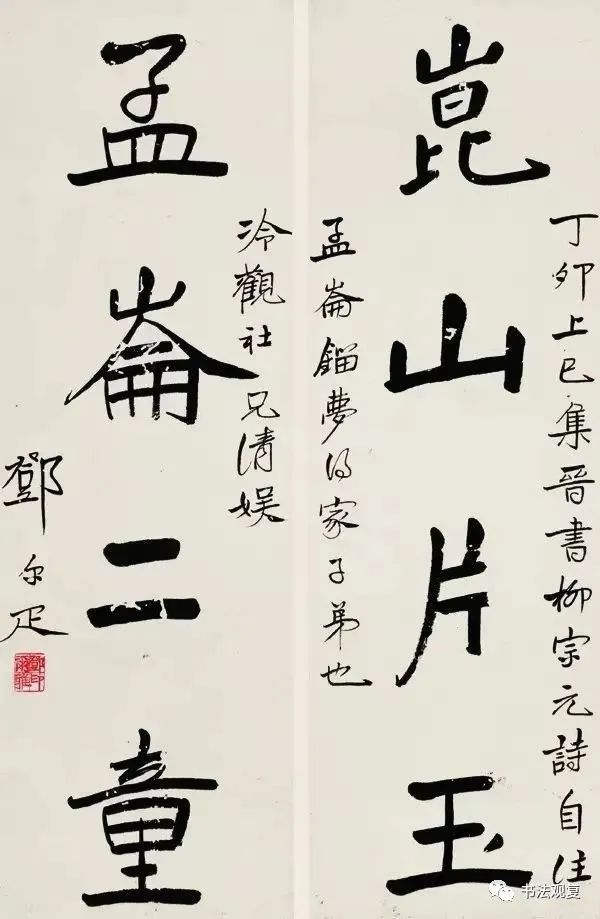 崑山片玉
丁卯上巳集晉書柳宗元詩自注
孟崙鎦夢得家子弟也
孟崙二童
冷觀社兄清娱
鄧尔疋
鄧印爾雅
书法观复